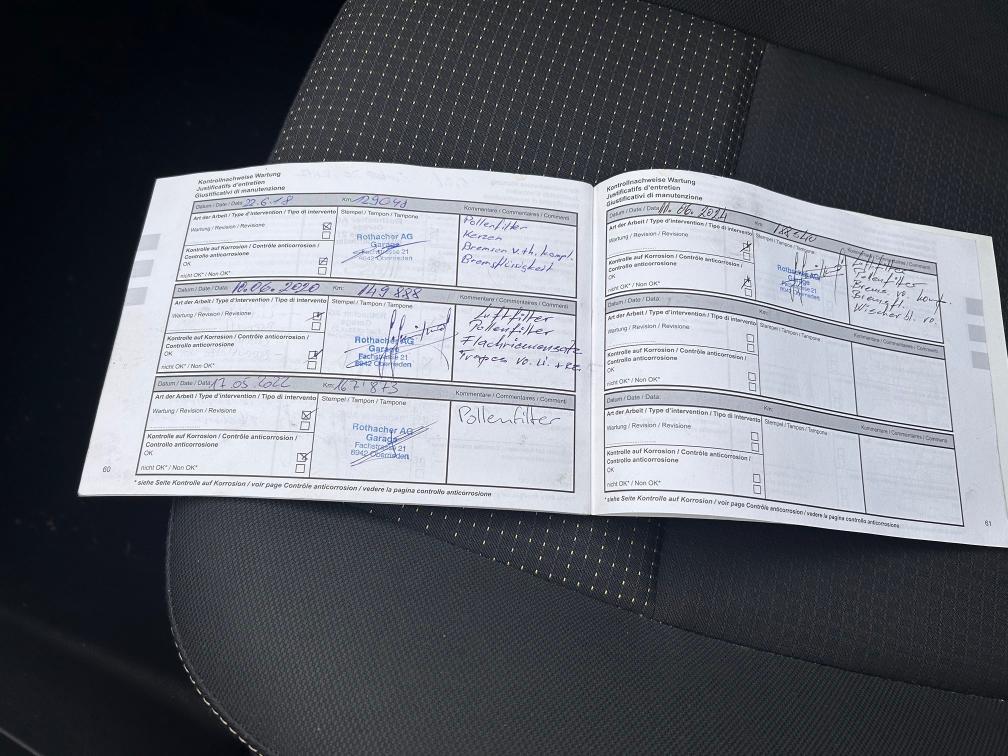 Kontrollnachweise Wartung
Justificatifs d'entretien
Giustificativi di manutenzione
Datum / Date / Data 22.6.18 Km: 129041
Art der Arbeit / Type d'intervention / Tipo di intervento
Stempel / Tampon / Tampone
Kommentare / Commentaires / Commenti
Wartung / Revision / Revisione
Kontrolle auf Korrosion / Contrôle anticorrosion /
Controllo anticorrosione
OK
nicht OK* / Non OK*
Rothacher AG
Garage
Fachstrasse 21
8942 Oberrieden
Pollenfilter
Kerzen
Bremsen v.+h. kompl.
Bremsflüssigkeit
Datum / Date / Data 12.06.2020 Km: 149888
Art der Arbeit / Type d'intervention / Tipo di intervento
Stempel / Tampon / Tampone
Kommentare / Commentaires / Commenti
Wartung / Revision / Revisione
Kontrolle auf Korrosion / Contrôle anticorrosion /
Controllo anticorrosione
OK
nicht OK* / Non OK*
Rothacher AG
Garage
Fachstrasse 21
8942 Oberrieden
Luftfilter
Pollenfilter
Flachriemensatz
vo. li. + re.
Datum / Date / Data 17.05.2022 Km: 167'873
Art der Arbeit / Type d'intervention / Tipo di intervento
Stempel / Tampon / Tampone
Kommentare / Commentaires / Commenti
Wartung / Revision / Revisione
Kontrolle auf Korrosion / Contrôle anticorrosion /
Controllo anticorrosione
OK
nicht OK* / Non OK*
Rothacher AG
Garage
Fachstrasse 21
8942 Oberrieden
Pollenfilter
60
* siehe Seite Kontrolle auf Korrosion / voir page Contrôle anticorrosion / vedere la pagina controllo anticorrosione
Kontrollnachweise Wartung
Justificatifs d'entretien
Giustificativi di manutenzione
Datum / Date / Data 11.06.2024 Km:
Art der Arbeit / Type d'intervention / Tipo di intervento
Stempel / Tampon / Tampone
Kommentare / Commentaires / Commenti
Wartung / Revision / Revisione
Kontrolle auf Korrosion / Contrôle anticorrosion /
Controllo anticorrosione
OK
nicht OK* / Non OK*
Rothacher AG
Garage
Fachstrasse 21
8942 Oberrieden
Pollenfilter
Bremse vo. kompl.
Bremsfl.
Wischerbl. vo.
Datum / Date / Data: Km:
Art der Arbeit / Type d'intervention / Tipo di intervento
Stempel / Tampon / Tampone
Kommentare / Commentaires / Commenti
Wartung / Revision / Revisione
Kontrolle auf Korrosion / Contrôle anticorrosion /
Controllo anticorrosione
OK
nicht OK* / Non OK*
Datum / Date / Data: Km:
Art der Arbeit / Type d'intervention / Tipo di intervento
Stempel / Tampon / Tampone
Kommentare / Commentaires / Commenti
Wartung / Revision / Revisione
Kontrolle auf Korrosion / Contrôle anticorrosion /
Controllo anticorrosione
OK
nicht OK* / Non OK*
* siehe Seite Kontrolle auf Korrosion / voir page Contrôle anticorrosion / vedere la pagina controllo anticorrosione
61